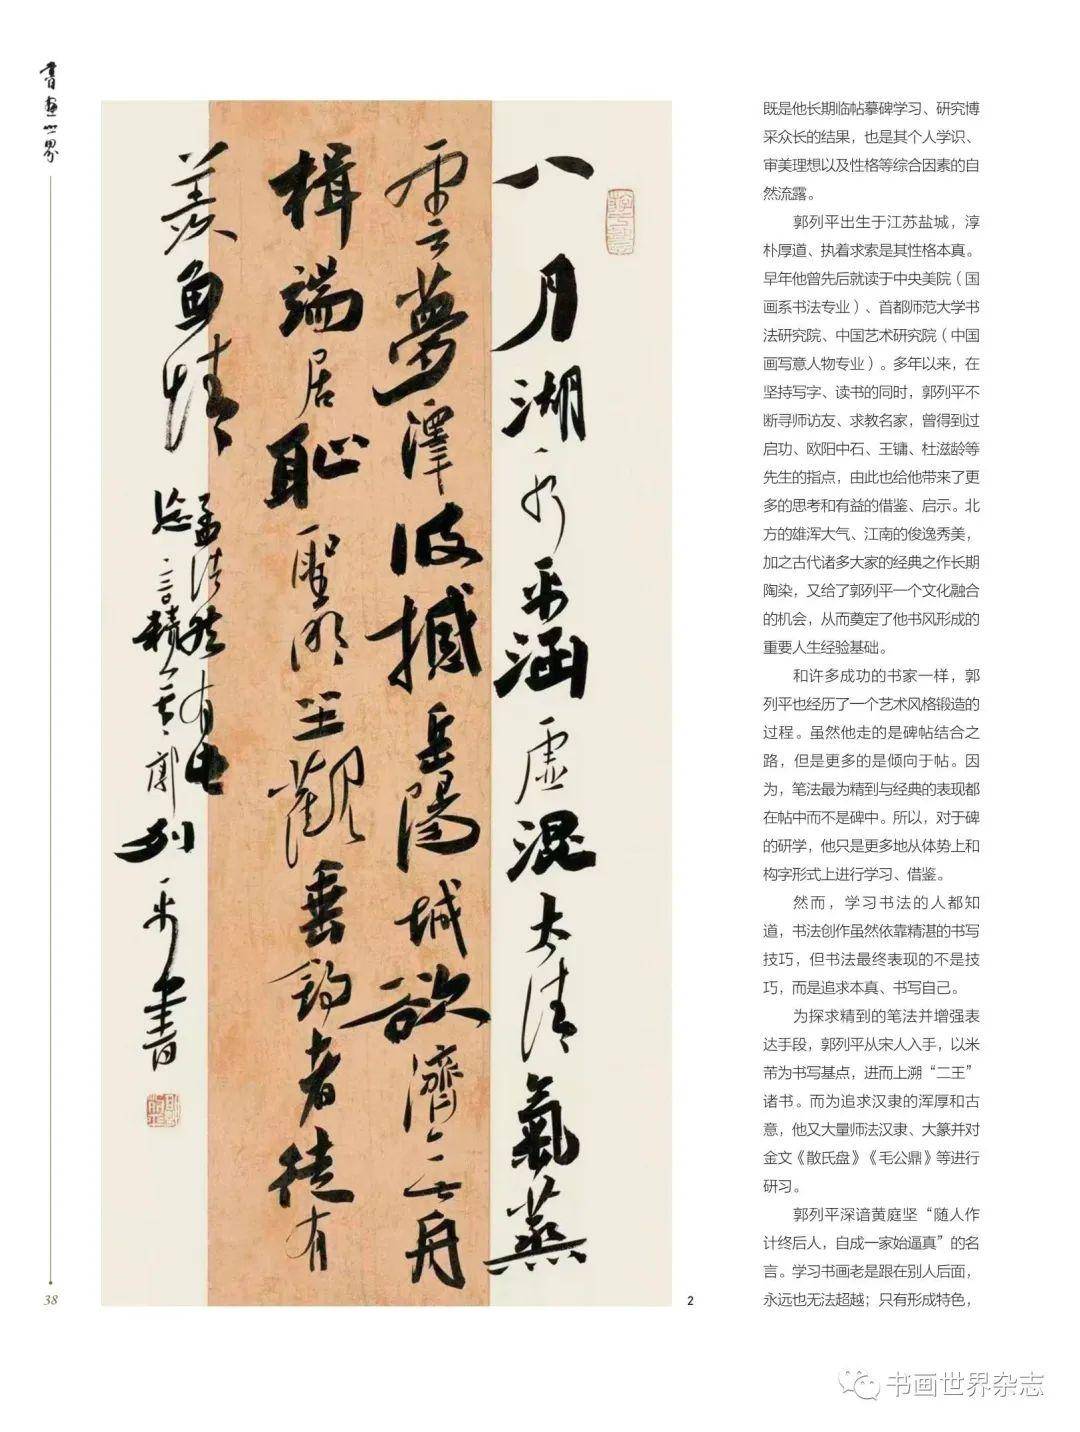 書畫世界
八月湖水平涵虛混太清氣蒸
雲夢澤波撼岳陽城欲濟無舟
楫端居恥聖明坐觀垂釣者徒有
羨魚情
孟浩然有
言精 郭列平書
38
2
既是他长期临帖摹碑学习、研究博
采众长的结果，也是其个人学识、
审美理想以及性格等综合因素的自
然流露。
郭列平出生于江苏盐城，淳
朴厚道、执着求索是其性格本真。
早年他曾先后就读于中央美院（国
画系书法专业）、首都师范大学书
法研究院、中国艺术研究院（中国
画写意人物专业）。多年以来，在
坚持写字、读书的同时，郭列平不
断寻师访友、求教名家，曾得到过
启功、欧阳中石、王镛、杜滋龄等
先生的指点，由此也给他带来了更
多的思考和有益的借鉴、启示。北
方的雄浑大气、江南的俊逸秀美，
加之古代诸多大家的经典之作长期
陶染，又给了郭列平一个文化融合
的机会，从而奠定了他书风形成的
重要人生经验基础。
和许多成功的书家一样，郭
列平也经历了一个艺术风格锻造的
过程。虽然他走的是碑帖结合之
路，但是更多的是倾向于帖。因
为，笔法最为精到与经典的表现都
在帖中而不是碑中。所以，对于碑
的研学，他只是更多地从体势上和
构字形式上进行学习、借鉴。
然而，学习书法的人都知
道，书法创作虽然依靠精湛的书写
技巧，但书法最终表现的不是技
巧，而是追求本真、书写自己。
为探求精到的笔法并增强表
达手段，郭列平从宋人入手，以米
芾为书写基点，进而上溯“二王”
诸书。而为追求汉隶的浑厚和古
意，他又大量师法汉隶、大篆并对
金文《散氏盘》《毛公鼎》等进行
研习。
郭列平深谙黄庭坚“随人作
计终后人，自成一家始逼真”的名
言。学习书画老是跟在别人后面，
永远也无法超越；只有形成特色，
书画世界杂志